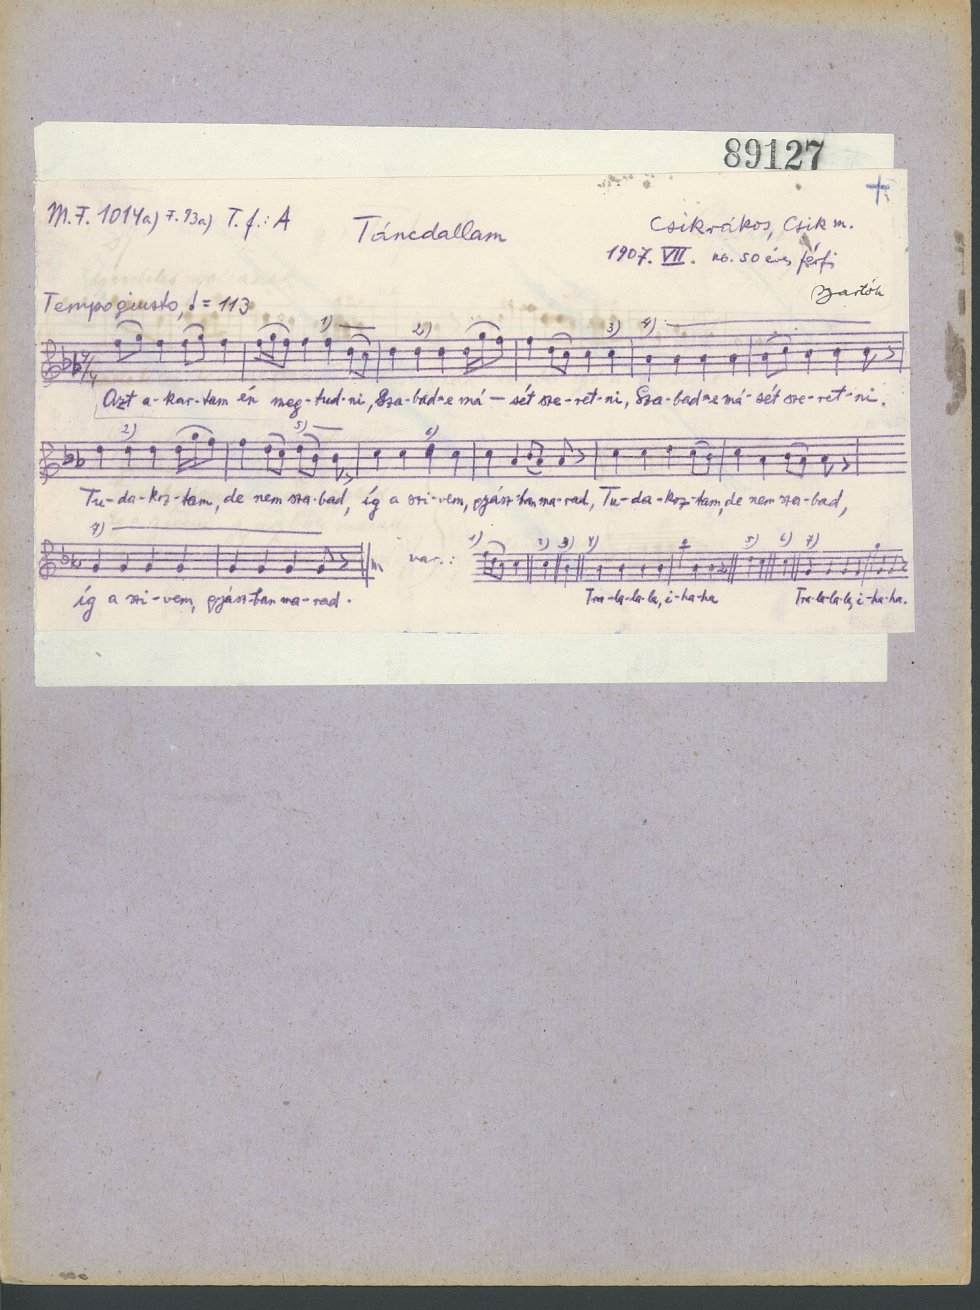 89127
M.F. 1014a) F. 93a) T. f.: A
Táncdallam
Csikrákos, Csik m.
1907. VII. kb. 50 éves férfi
Bartók
Tempo giusto, ♩ = 113
1) 2) 3) 4)
Azt a-kar-tam én meg-tud-ni, Sza-bad-e má-sét sze-ret-ni, Sza-bad-e má-sét sze-ret-ni.
2) 5) 6)
Tu-da-koz-tam, de nem sza-bad, íg a szi-vem, gyász-ban ma-rad, Tu-da-koz-tam, de nem sza-bad,
7)
íg a szi-vem, gyász-ban ma-rad.
var.: 1) 2) 3) 4) 5) 6) 7)
Tra-la-la-la, i-ha-ha Tra-la-la-la, i-ha-ha.